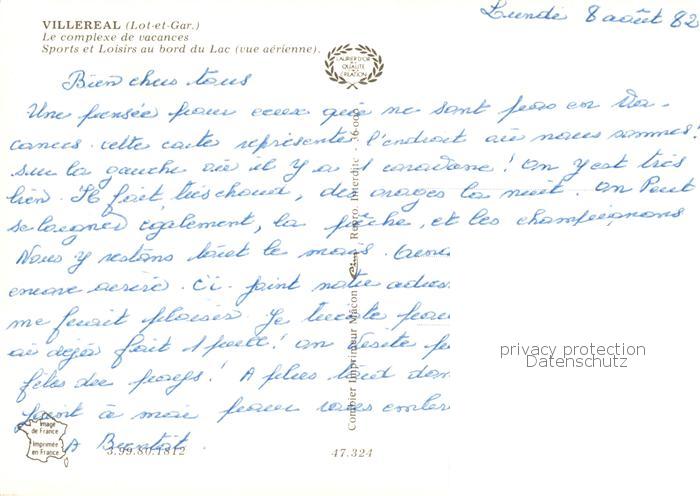 Lundi 8 août 82
VILLEREAL (Lot-et-Gar.)
Le complexe de vacances
Sports et Loisirs au bord du Lac (vue aérienne).
LAURIER D'OR
QUALITÉ
CRÉATION
Bien chers tous
Une pensée pour ceux qui ne sont pas en Va-
cances. cette carte représente l'endroit où nous sommes!
sur la gauche où il y a 1 caravane! On y est très
bien. Il fait très chaud, des orages la nuit. On Peut
se baigner également, la pêche, et les champignons
Nous y restons tout le mois.
encore Ci-joint notre adres
me ferait plaisir. Je pour
ai déjà fait 1 pull! on visite
fêtes des pays! A plus tard don
joint à moi pour vous embr
A Bientôt.
Combier Imprimeur Mâcon "Cim" Repro. Interdite - 36.000
privacy protection
Datenschutz
Image
de France
Imprimée
en France
3.99.80.1812
47.324